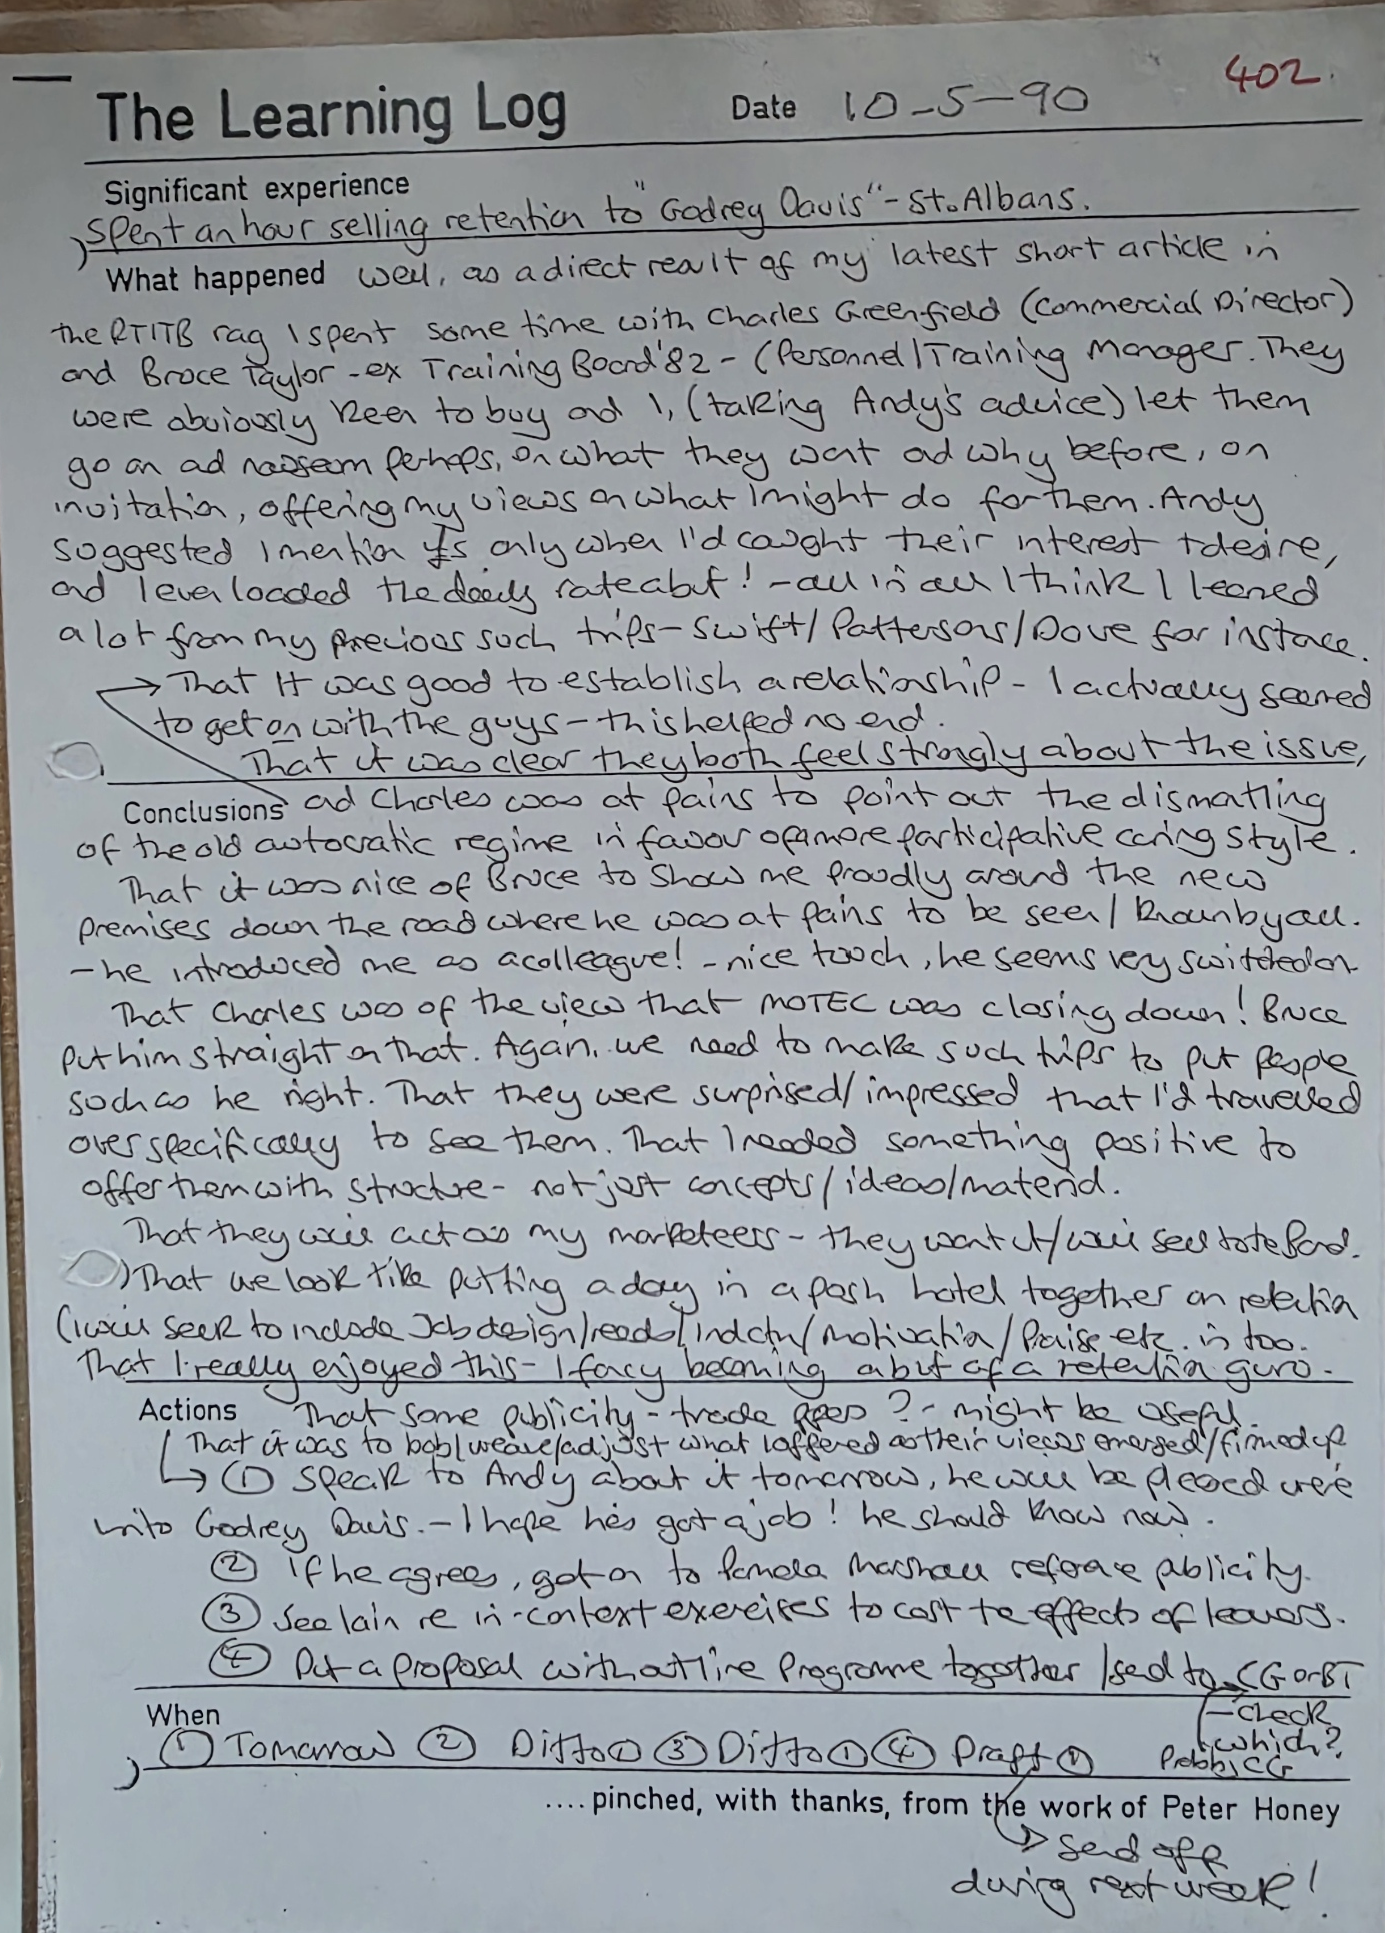 402.
The Learning Log Date 10-5-90
Significant experience
Spent an hour selling retention to "Godrey Davis" - St. Albans.
What happened Well, as a direct result of my latest short article in
the RTITB rag I spent some time with Charles Greenfield (Commercial Director)
and Bruce Taylor - ex Training Board '82 - (Personnel/Training Manager. They
were obviously keen to buy and I, (taking Andy's advice) let them
go on ad nauseam perhaps, on what they want and why before, on
invitation, offering my views on what I might do for them. Andy
suggested I mention £s only when I'd caught their interest + desire,
and I even loaded the daily rate a bit! - all in all I think I learned
a lot from my previous such trips - Swift/Pattersons/Dove for instance.
→ That it was good to establish a relationship - I actually seemed
to get on with the guys - this helped no end.
That it was clear they both feel strongly about the issue,
Conclusions and Charles was at pains to point out the dismantling
of the old autocratic regime in favour of a more participative caring style.
That it was nice of Bruce to show me proudly around the new
premises down the road where he was at pains to be seen/known by all.
- he introduced me as a colleague! - nice touch, he seems very switched on
That Charles was of the view that MOTEC was closing down! Bruce
put him straight on that. Again, we need to make such trips to put people
such as he right. That they were surprised/impressed that I'd travelled
over specifically to see them. That I needed something positive to
offer them with structure - not just concepts/ideas/material.
That they will act as my marketeers - they want it/will sell to the Board.
That we look like putting a day in a posh hotel together on retention
(I will seek to include Job design/needs/indctn/motivation/Praise etc. in too.
That I really enjoyed this - I fancy becoming a bit of a retention guru.
Actions That some publicity - trade ? - might be useful.
That it was to bob/weave/adjust what I offered as their views emerged/firmed up
→ ① Speak to Andy about it tomorrow, he will be pleased we're
into Godrey Davis. - I hope he's got a job! he should know now.
② if he agrees, get on to Pamela Marshall reference publicity.
③ See Iain re in-context exercises to cost the effects of leavers.
④ Put a proposal with outline Programme together/send to CG or BT
When
- check
which?
Probbly CG
① Tomorrow ② Ditto ① ③ Ditto ① ④ Draft ①
.... pinched, with thanks, from the work of Peter Honey
→ Send off
during next week!